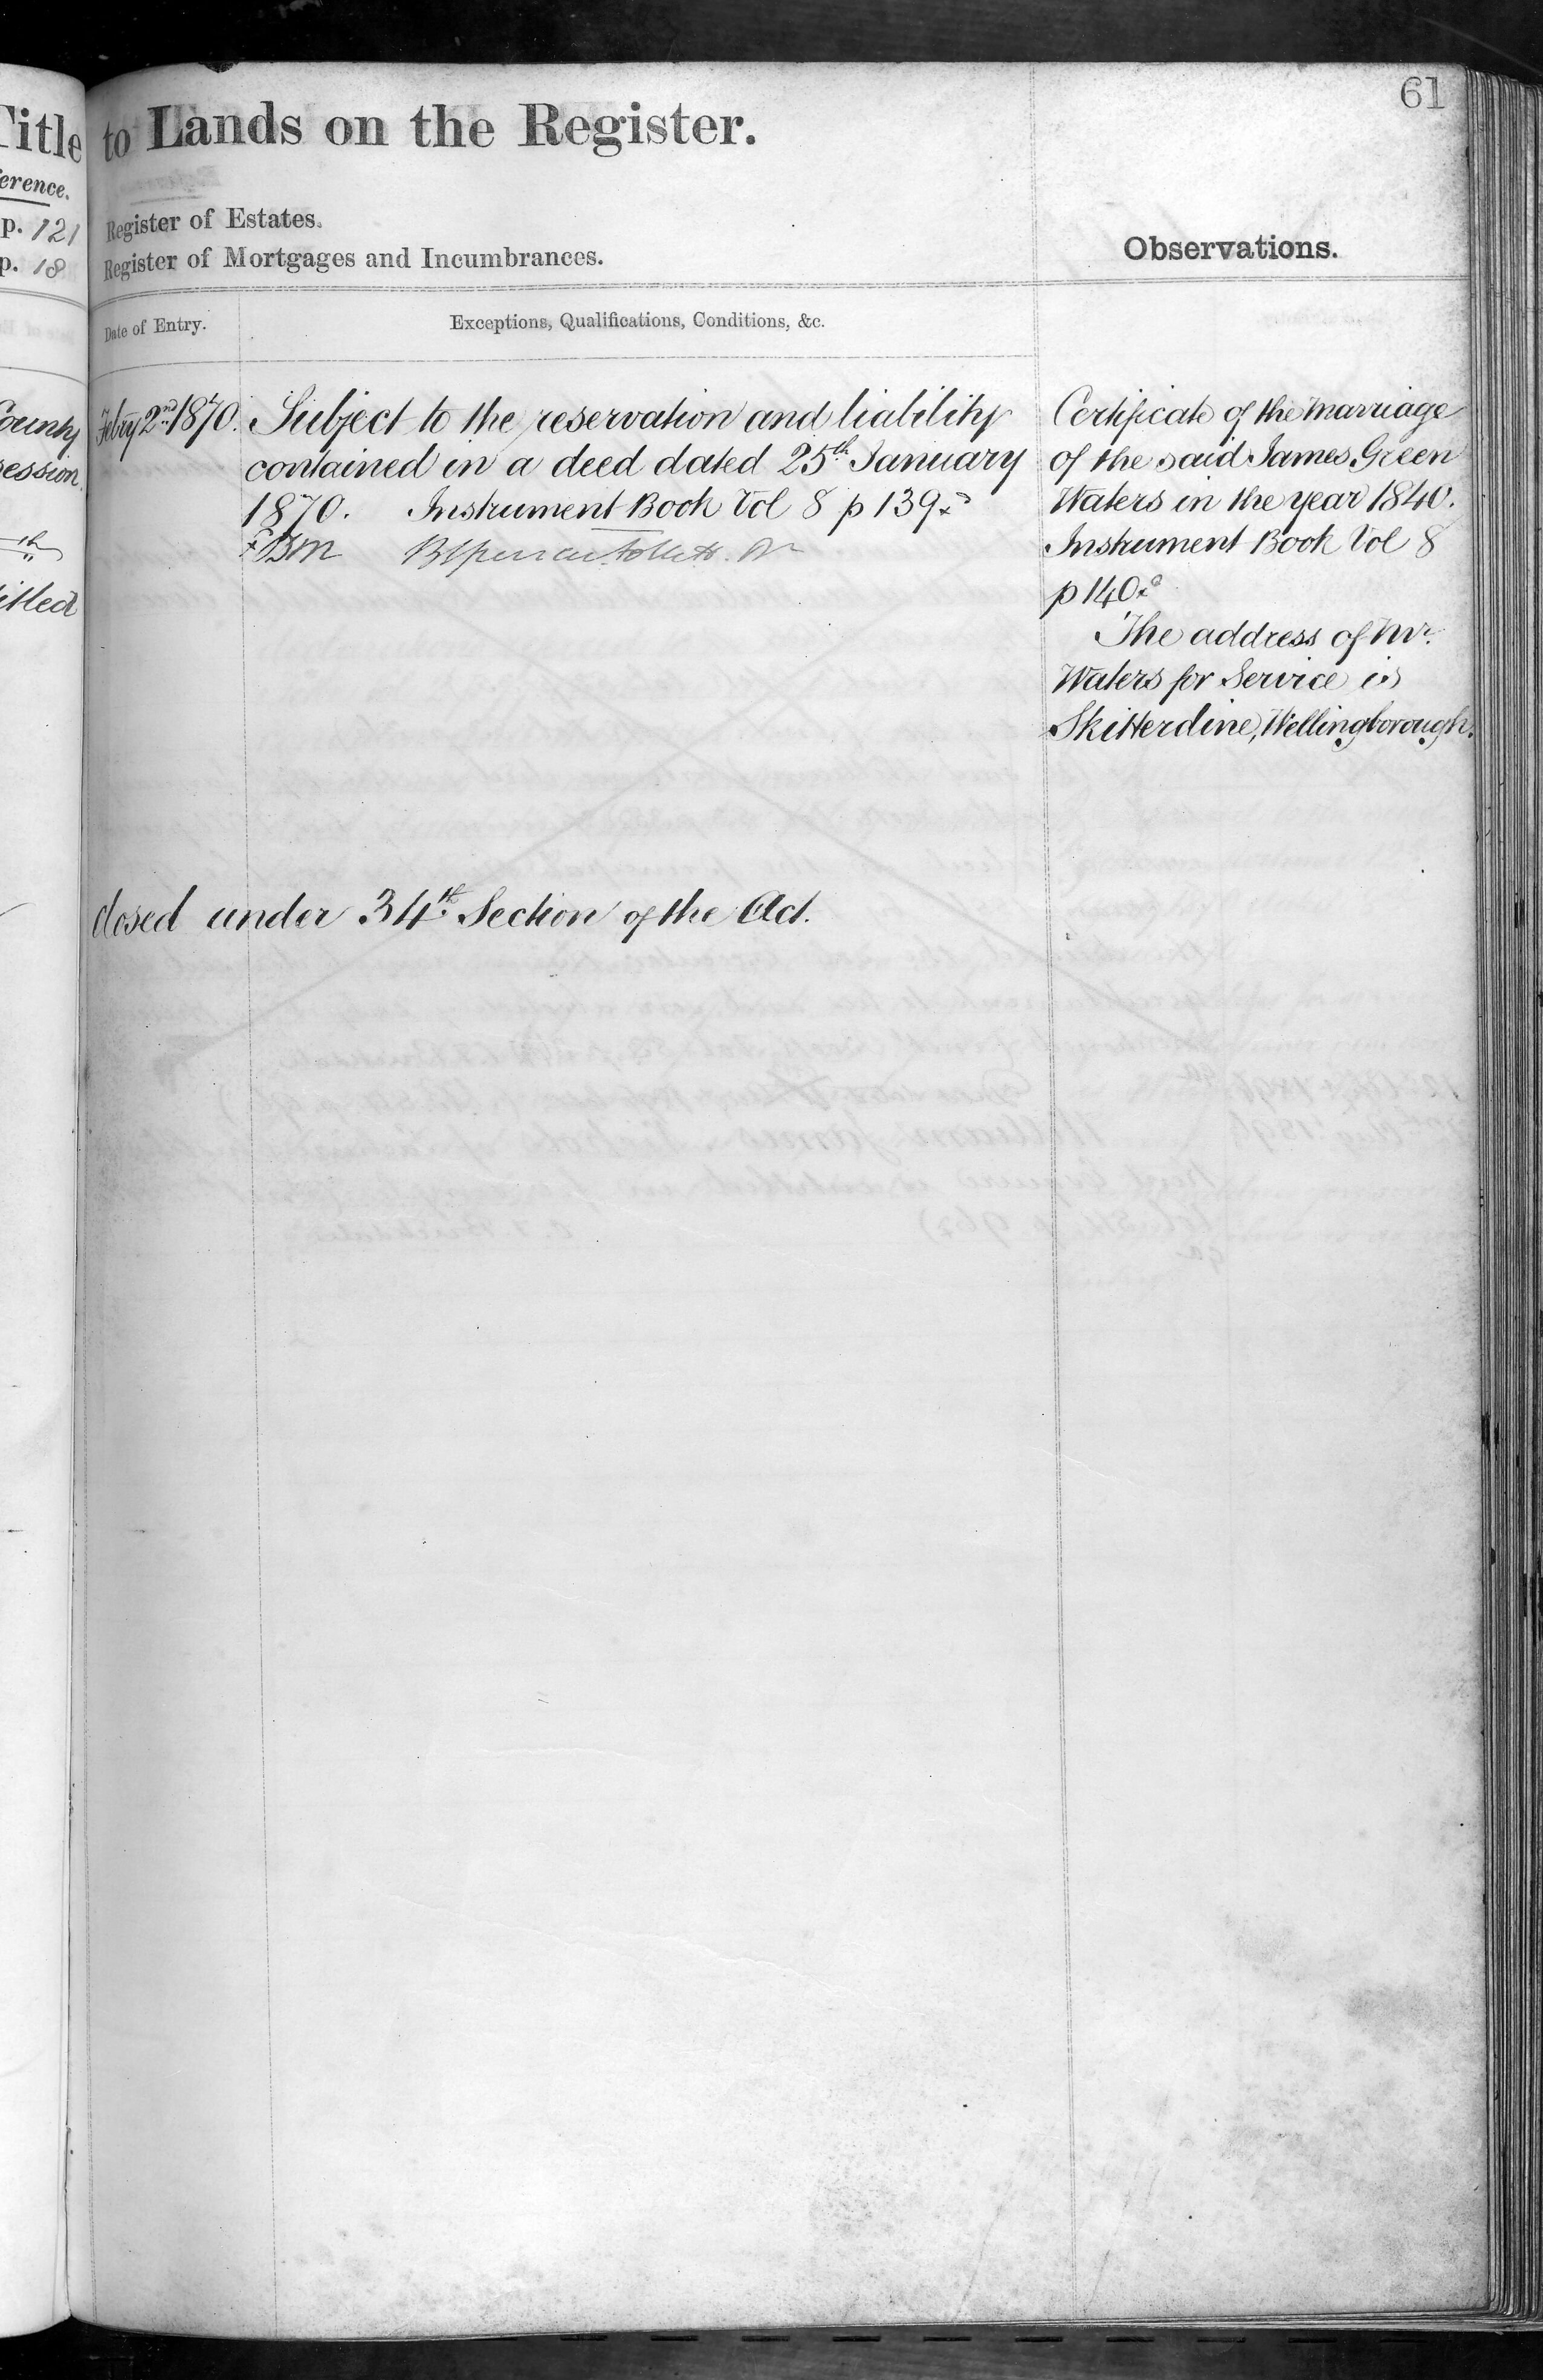 61
Title to Lands on the Register.
p. 121 Register of Estates.
p. 18 Register of Mortgages and Incumbrances.
Observations.
Date of Entry.
Exceptions, Qualifications, Conditions, &c.
Febry 2nd 1870.
Subject to the reservation and liability
contained in a deed dated 25th January
1870. Instrument Book Vol 8 p 139
Certificate of the Marriage
of the said James Green
Waters in the year 1840.
Instrument Book Vol 8
p 140
The address of Mr.
Waters for Service is
Skitterdine, Wellingborough.
closed under 34th Section of the Act.